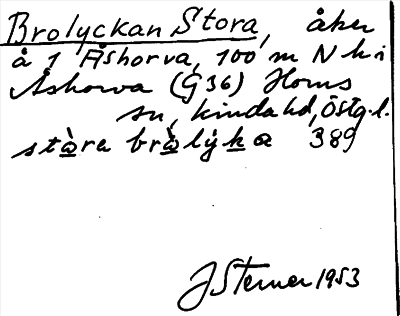 Brolyckan Stora, åker
å 1 Åshorva, 100 m N h i
Åshorva (G36) Horns
sn, Kinda hd, Östg.l.
stàra bràlýka 389
J Sterner 1953